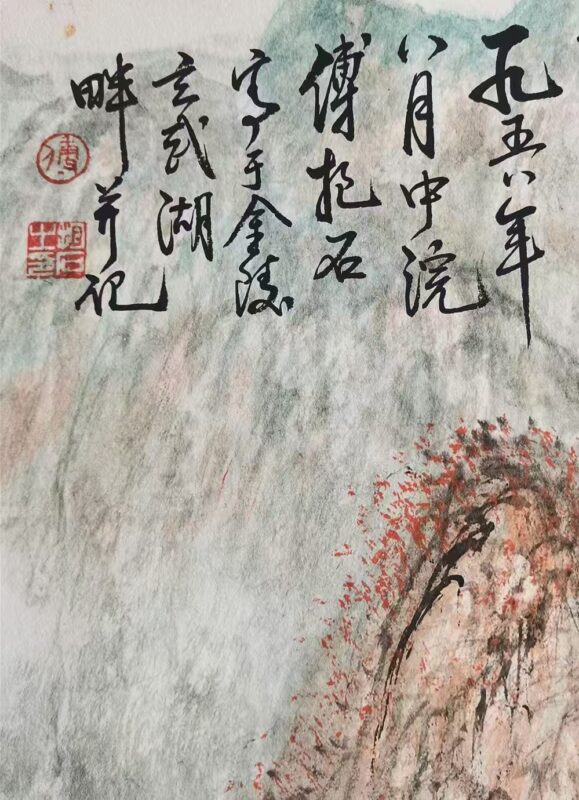 一九五八年
八月中浣
傅抱石
写于金陵
玄武湖
畔并记
傅
抱石之印